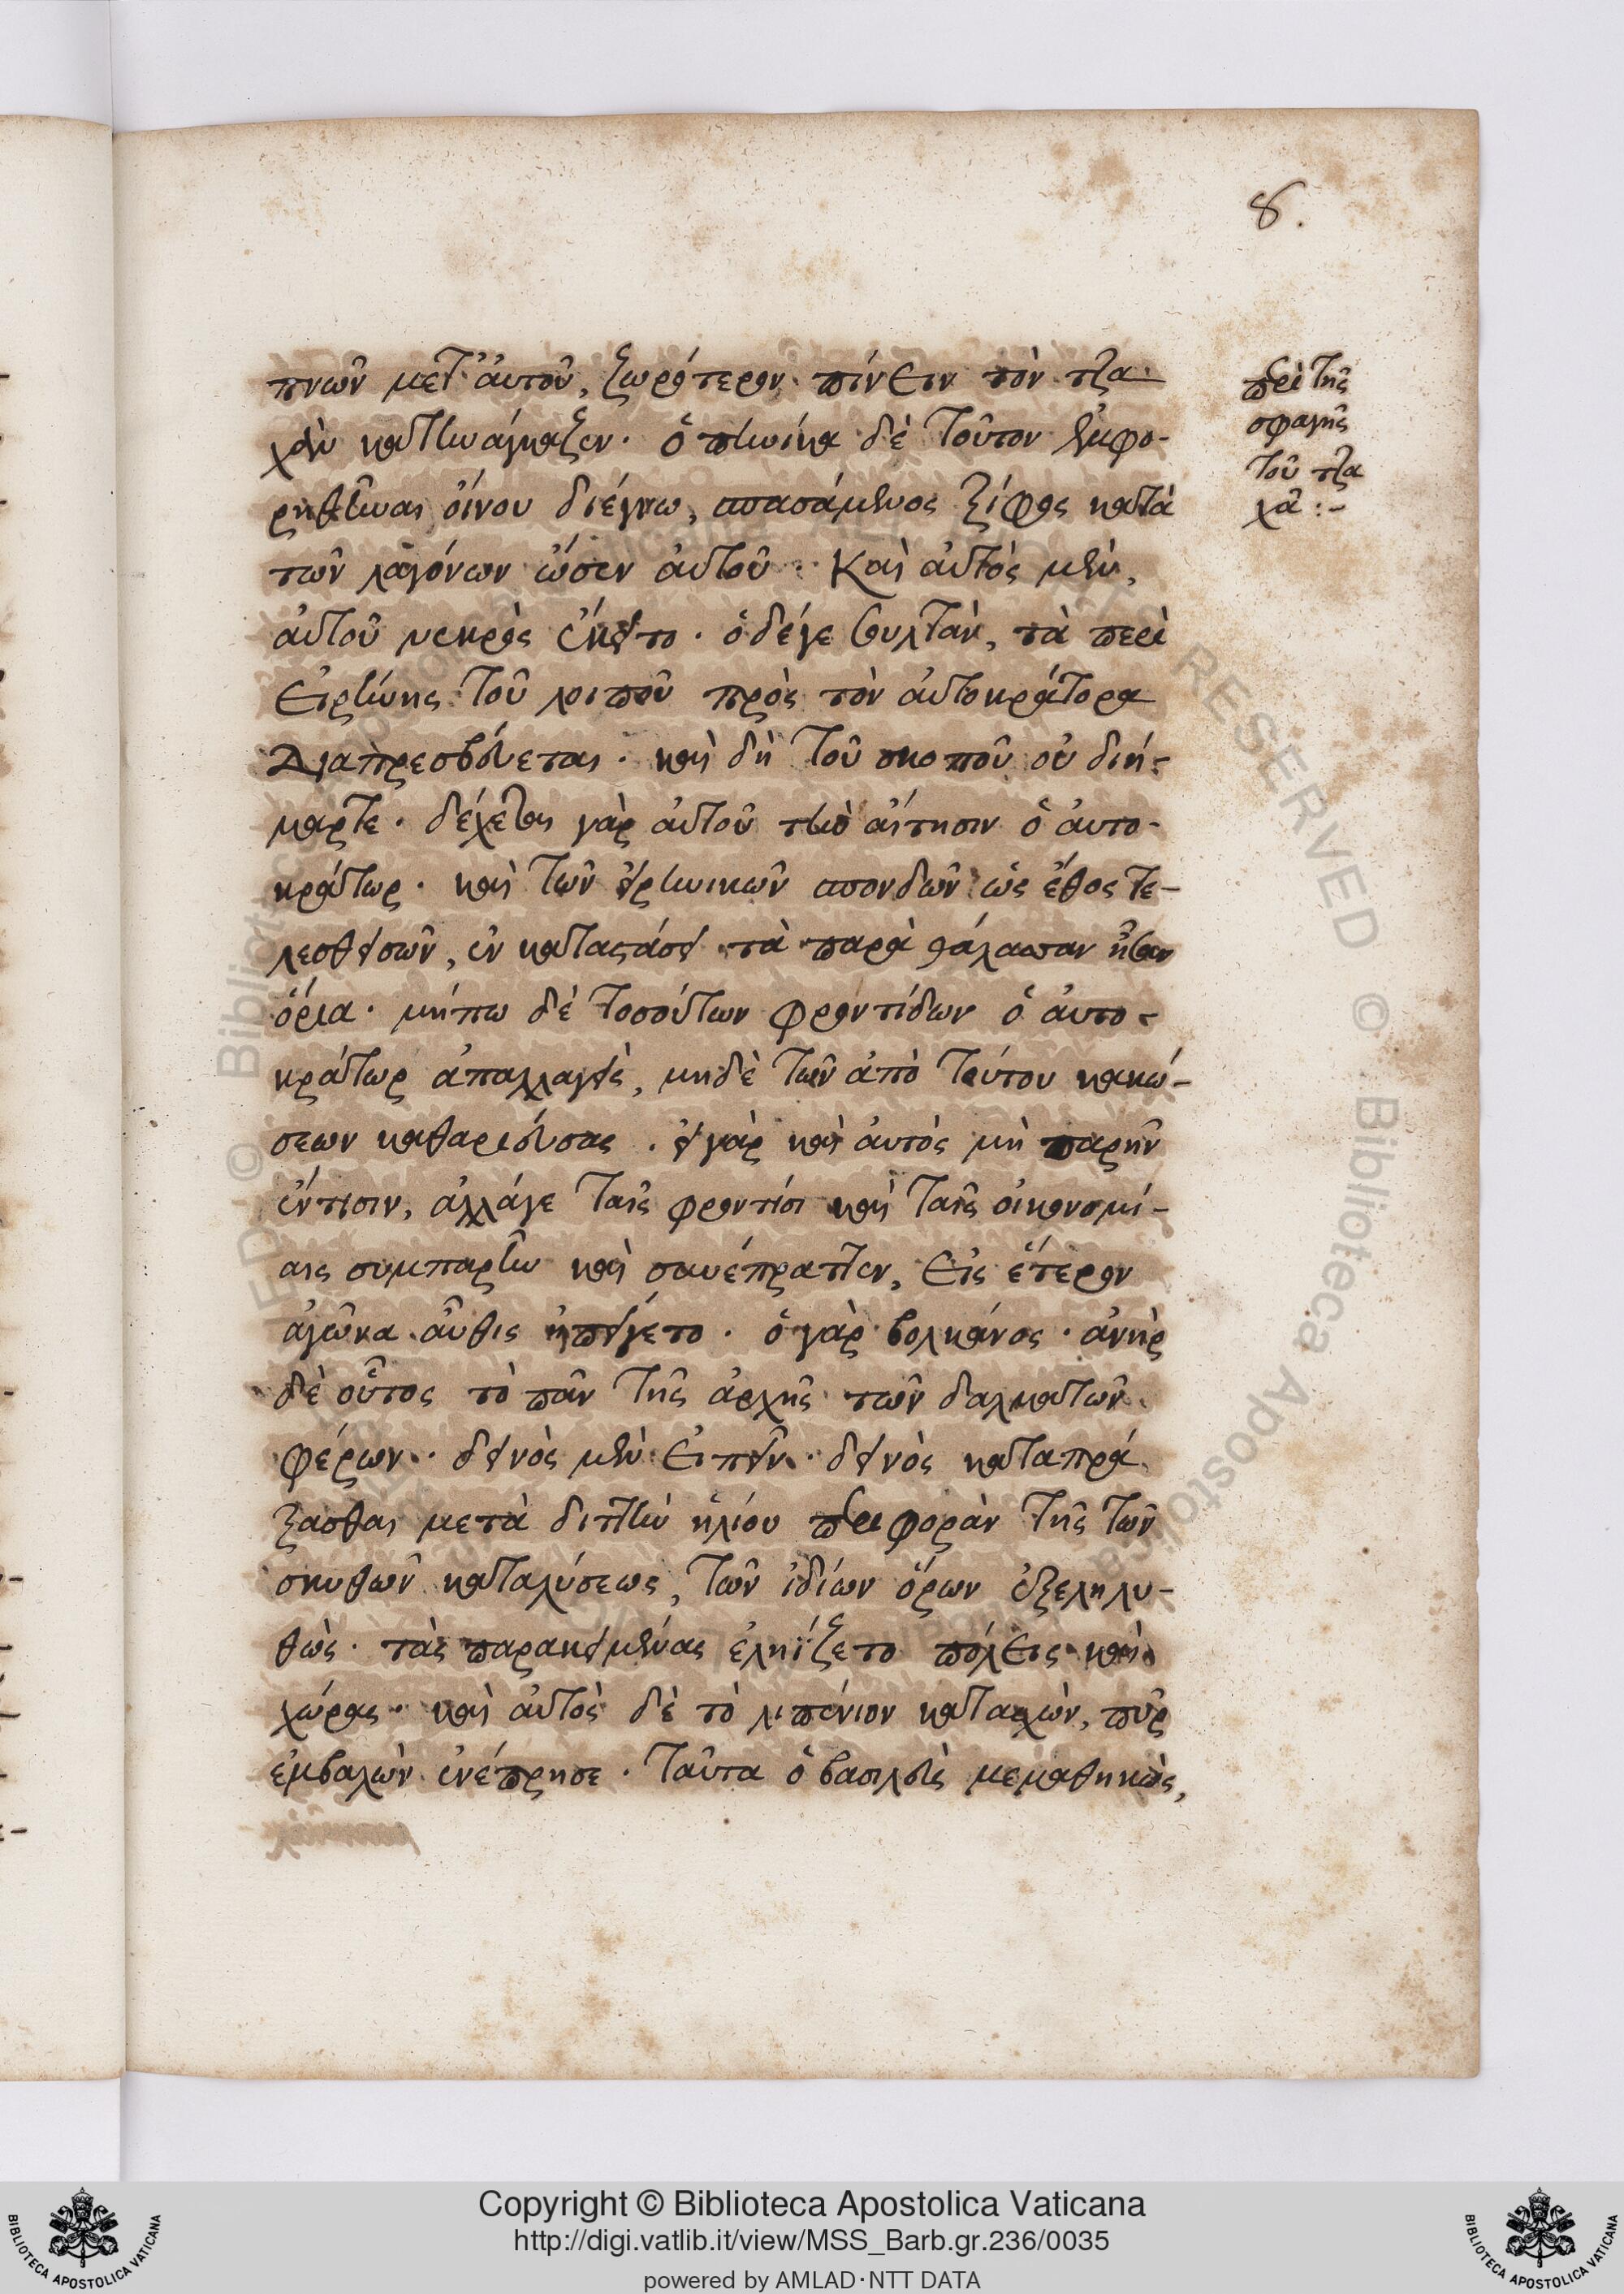 8.
πνῶν μετ' αὐτοῦ, ζωρότερον πίνειν τὸν τζα-
χὰν κατηνάγκαζεν· ὁπηνίκα δὲ τοῦτον ἐμφο-
ρηθῆναι οἴνου διέγνω, σπασάμενος ξίφος κατὰ
τῶν λαγόνων ὦσεν αὐτοῦ· Καὶ αὐτὸς μὲν,
αὐτοῦ νεκρὸς ἔκειτο· ὁ δέγε σουλτὰν, τὰ περὶ
εἰρήνης τοῦ λοιποῦ πρὸς τὸν αὐτοκράτορα
διαπρεσβεύεται· καὶ δὴ τοῦ σκοποῦ οὐ διή-
μαρτε· δέχεται γὰρ αὐτοῦ τὴν αἴτησιν ὁ αὐτο-
κράτωρ· καὶ τῶν εἰρηνικῶν σπονδῶν ὡς ἔθος τε-
λεσθεισῶν, ἐν καταστάσει τὰ παρὰ θάλασσαν ἦσαν
ὅρια· μήπω δὲ τοσούτων φροντίδων ὁ αὐτο-
κράτωρ ἀπαλλαγεὶς, μηδὲ τῶν ἀπὸ τούτου κακώ-
σεων καθαρεύσας· εἰ γὰρ καὶ αὐτὸς μὴ παρῆν
ἔντισιν, ἀλλάγε ταῖς φροντίσι καὶ ταῖς οἰκονομί-
αις συμπαρῆν καὶ συνέπραττεν, εἰς ἕτερον
ἀγῶνα αὖθις ἠπείγετο· ὁ γὰρ βολκάνος· ἀνὴρ
δὲ οὗτος τὸ πᾶν τῆς ἀρχῆς τῶν δαλματῶν
φέρων· δεινὸς μὲν εἰπεῖν· δεινὸς καταπρά
ξασθαι μετὰ διττὴν ἡλίου περιφορὰν τῆς τῶν
σκυθῶν καταλύσεως, τῶν ἰδίων ὅρων ἐξεληλυ-
θὼς· τὰς παρακειμένας ἐληΐζετο πόλεις καὶ
χώρας· καὶ αὐτὸς δὲ τὸ λιπένιον κατασχὼν, πῦρ
ἐμβαλὼν ἐνέπρησε· ταῦτα ὁ βασιλεὺς μεμαθηκὼς,
περὶ τῆς
σφαγῆς
τοῦ τζα
χᾶ :-
© Biblioteca Apostolica
RESERVED © Biblioteca Apostolica
BIBLIOTECA APOSTOLICA VATICANA
Copyright © Biblioteca Apostolica Vaticana
http://digi.vatlib.it/view/MSS_Barb.gr.236/0035
powered by AMLAD·NTT DATA
BIBLIOTECA APOSTOLICA VATICANA